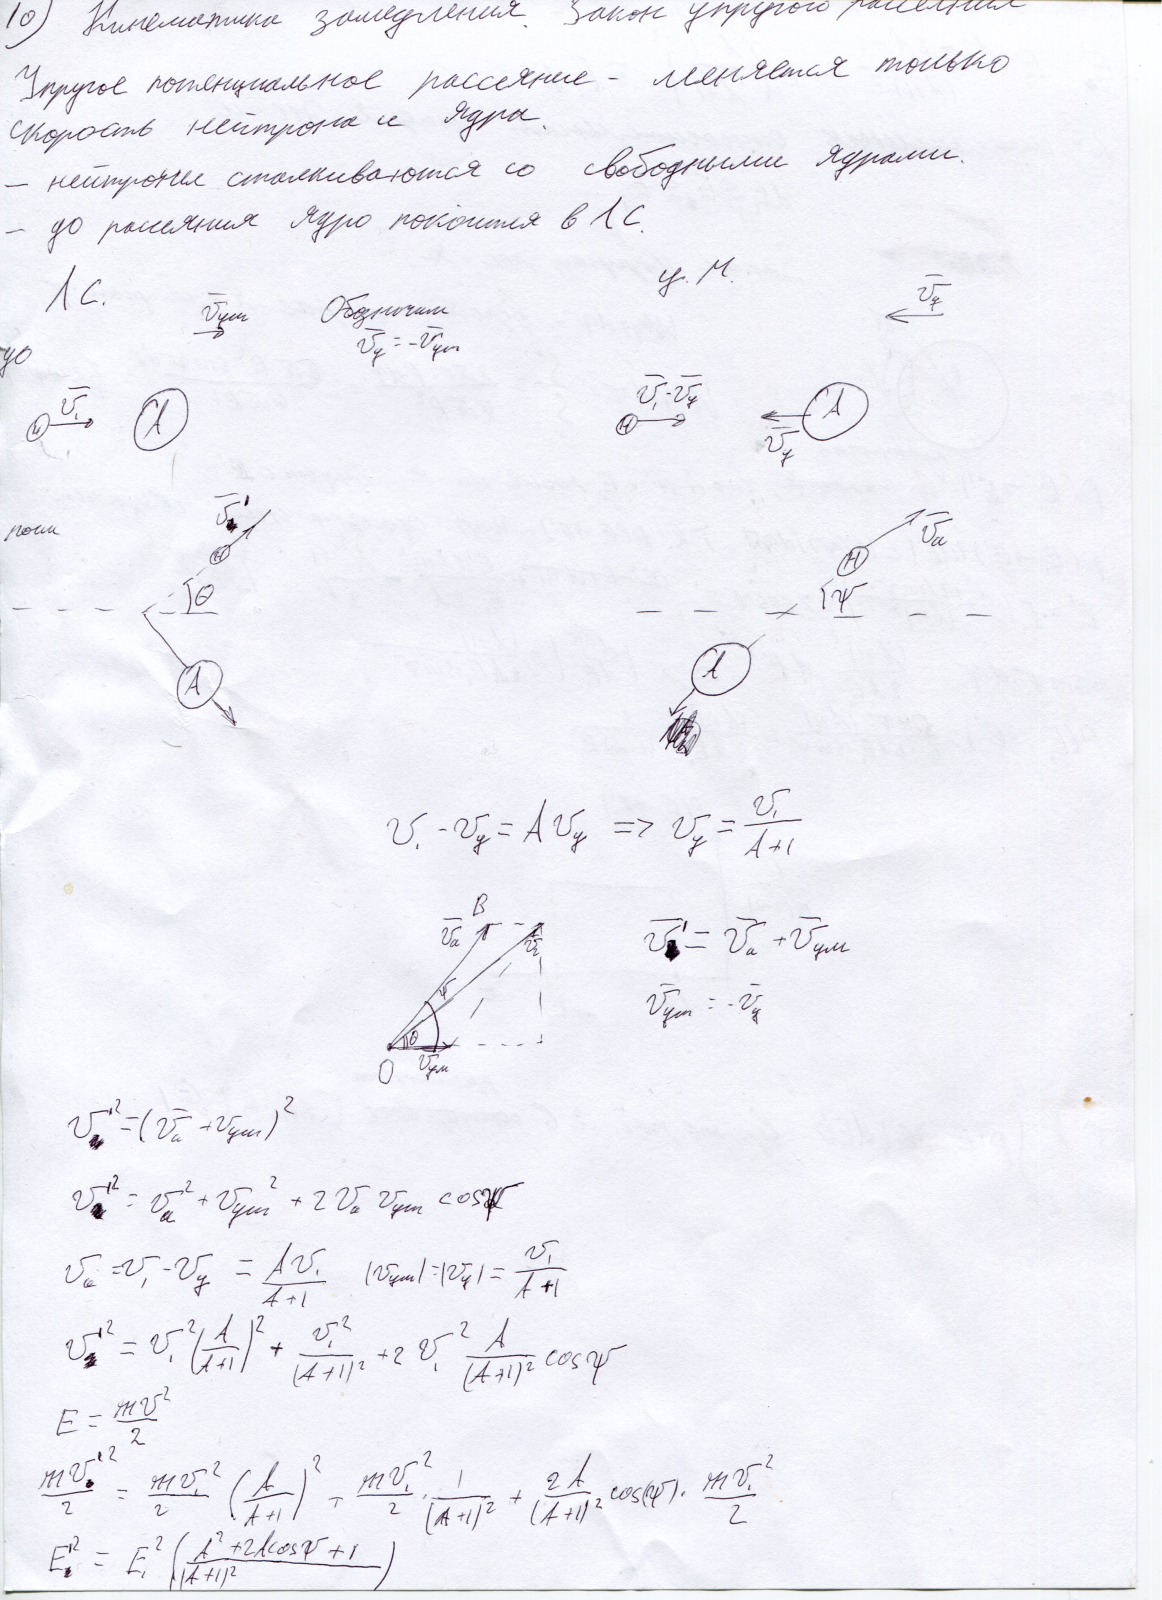 10) Кинематика замедления. Закон упругого рассеяния
Упругое потенциальное рассеяние - меняется только
скорость нейтрона и ядра.
- нейтроны сталкиваются со свободными ядрами.
- до рассеяния ядро покоится в ЛС.
ЛС. ц.М.
v̄цм Обозначим v̄я
v̄я = -v̄цм
до
v̄₁ A v̄₁-v̄я н A
v̄я
после v̄' v̄a
н н
θ ψ
A A
v₁ - vя = A vя => vя = v₁/(A+1)
B
v̄a v̄' = v̄a + v̄цм
ψ v̄цм = -v̄я
θ
O v̄цм
v'² = (v̄a + v̄цм)²
v'² = va² + vцм² + 2 va vцм cosψ
va = v₁ - vя = Av₁/(A+1) |vцм| = |vя| = v₁/(A+1)
v'² = v₁² (A/(A+1))² + v₁²/(A+1)² + 2 v₁² A/(A+1)² cosψ
E = mv²/2
mv'²/2 = mv₁²/2 (A/(A+1))² + mv₁²/2 · 1/(A+1)² + 2A/(A+1)² cos(ψ) · mv₁²/2
E'² = E₁² ((A² + 2Acosψ + 1)/(A+1)²)